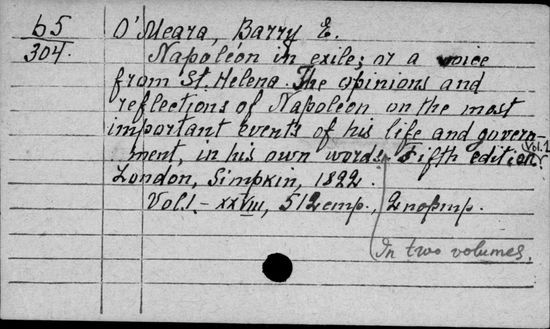 65 O'Meara, Barry E.
304. Napoléon in exile; or a voice
from St. Helena. The opinions and
reflections of Napoleon on the most
important events of his life and govern-
ment, in his own words. Fifth edition. Vol. 1
London, Simpkin, 1822.
Vol. I.- XXVIII, 512 стр., 2 портр.
In two volumes.